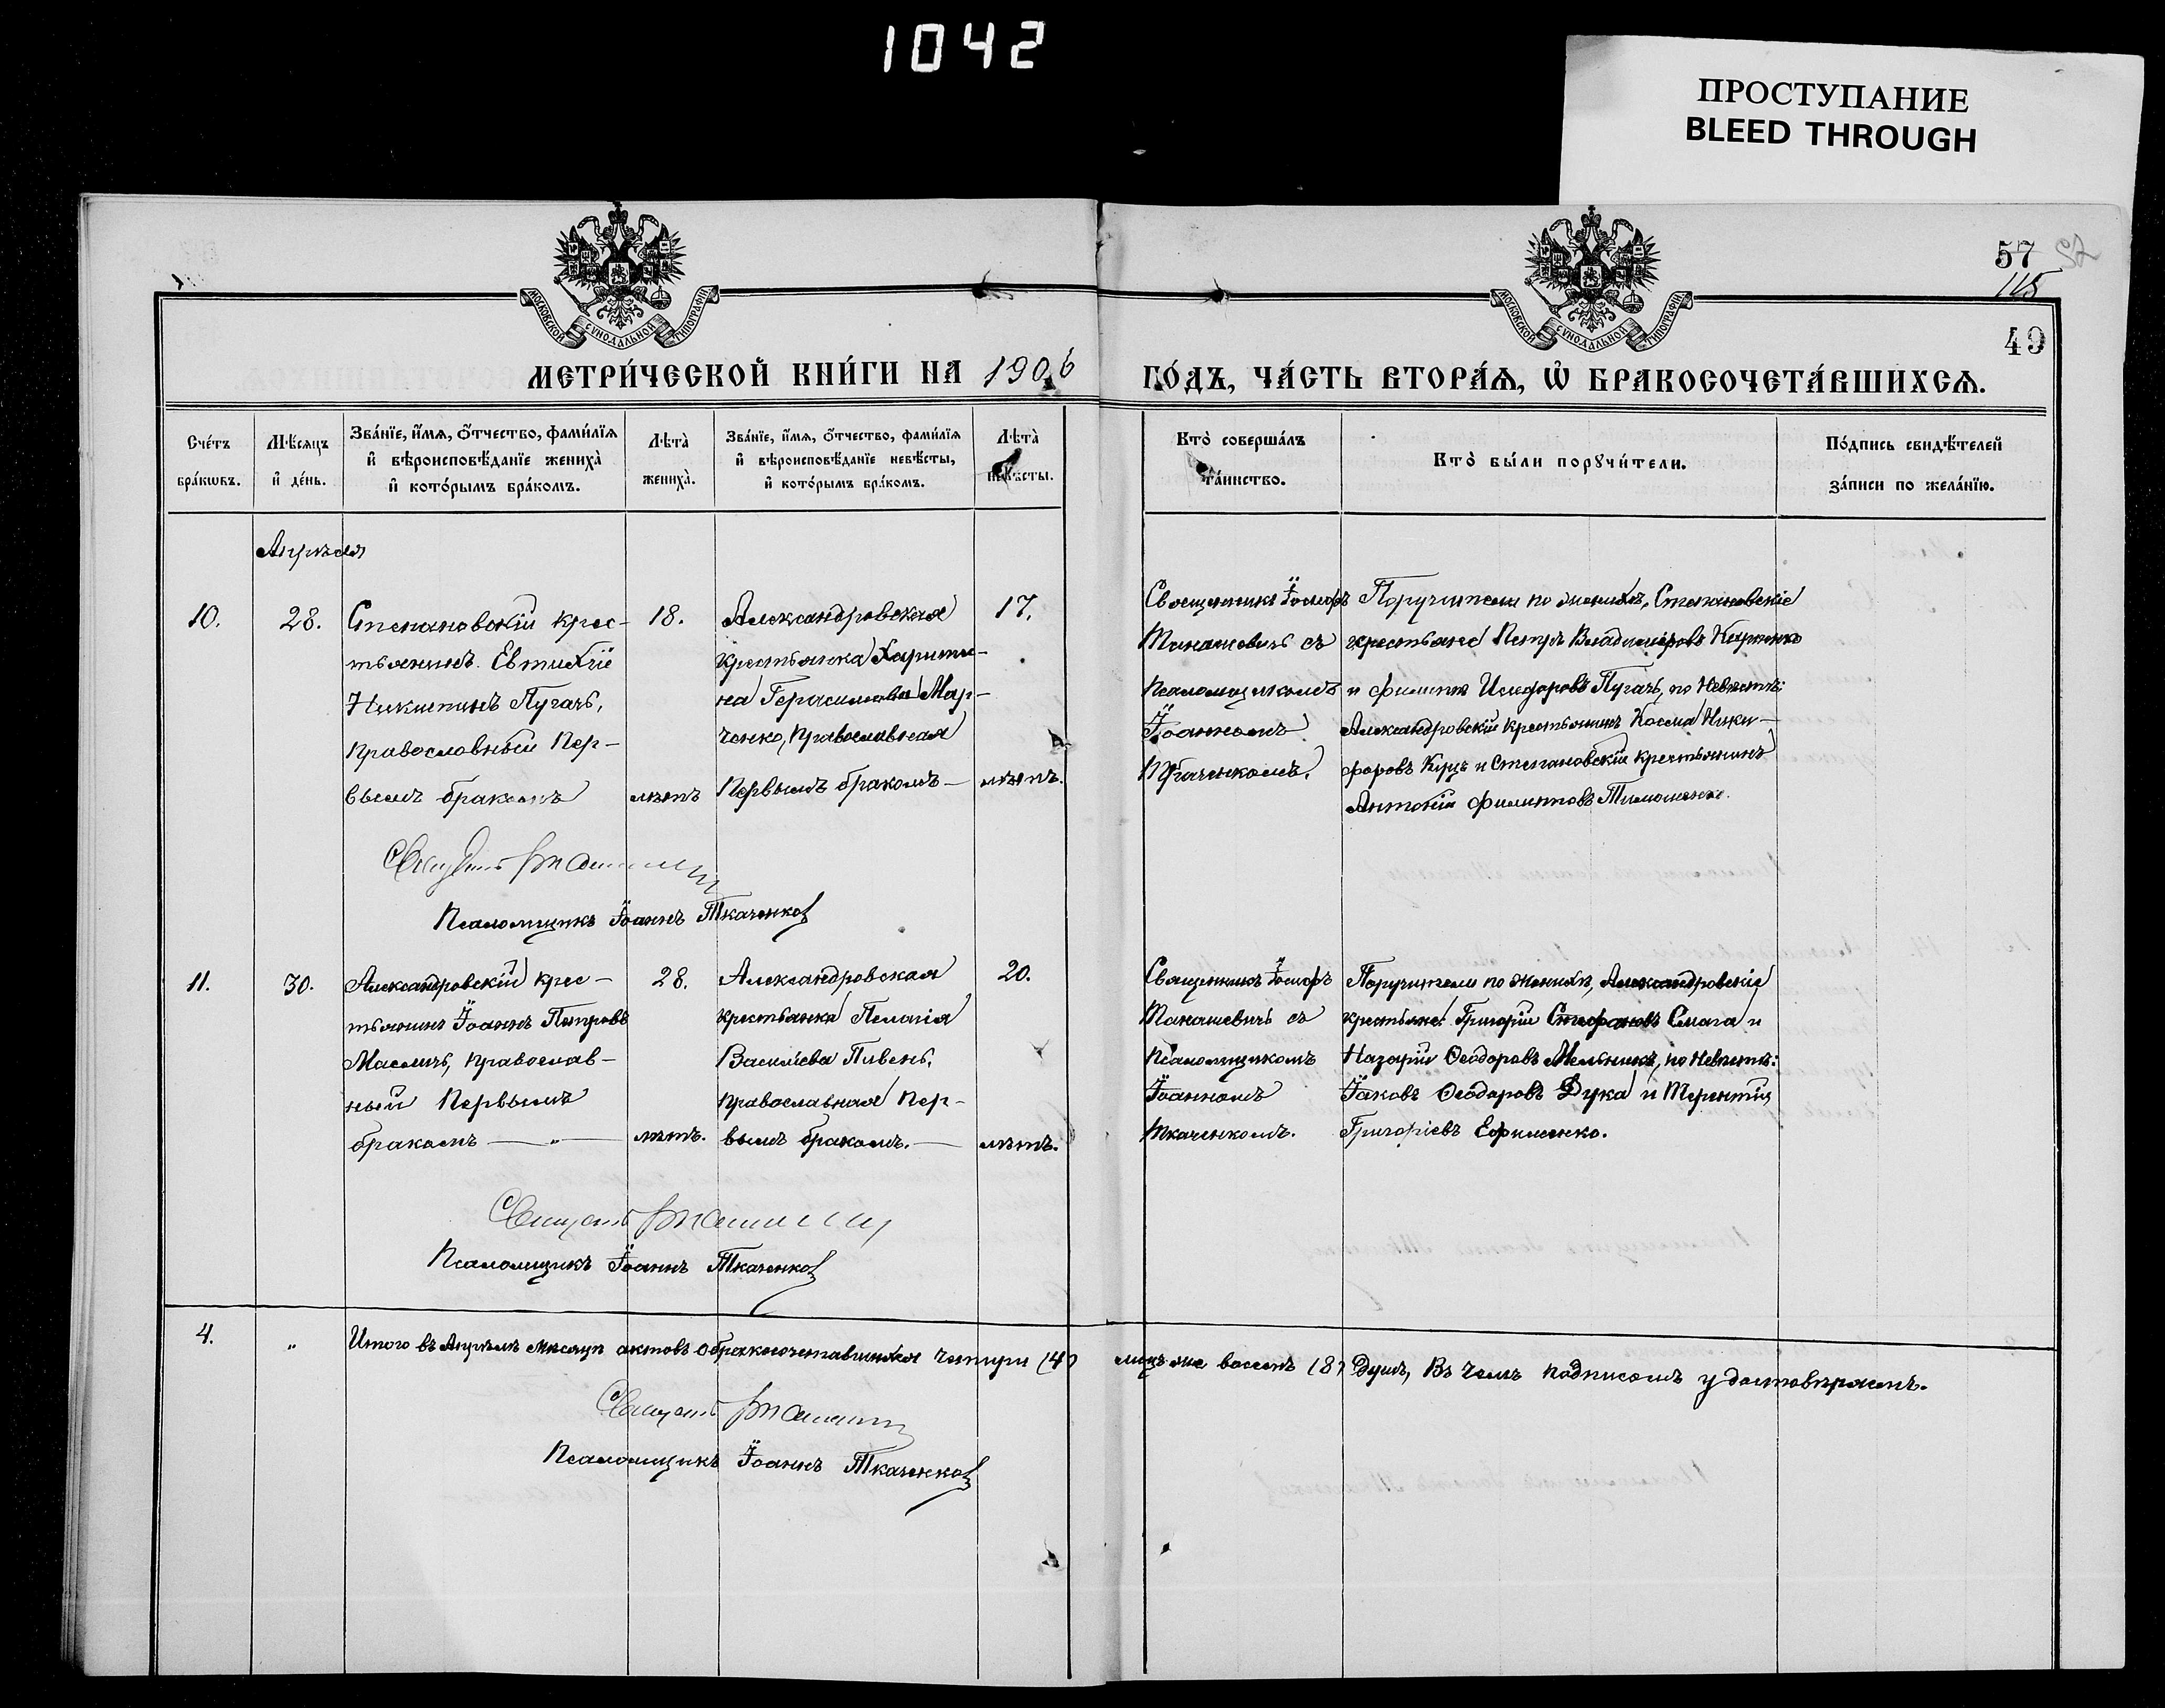 1042
ПРОСТУПАНИЕ
BLEED THROUGH
57
115
49
МОСКОВСКОЙ СѴНОДАЛЬНОЙ ТИПОГРАФІИ
МОСКОВСКОЙ СѴНОДАЛЬНОЙ ТИПОГРАФІИ
МЕТРИ́ЧЕСКОЙ КНИ́ГИ НА 1906 ГО́ДЪ, ЧА́СТЬ ВТОРА́Ѧ, Ѡ҆ БРАКОСОЧЕТА́ВШИХСѦ.
Сче́тъ
бра́кѡвъ.
Мѣ́сѧцъ
и҆ де́нь.
Зва́нїе, и҆́мѧ, ѻ҆́тчество, фами́лїѧ
и҆ вѣроисповѣ́данїе жениха̀
и҆ кото́рымъ бра́комъ.
Лѣта̀
жениха̀.
Зва́нїе, и҆́мѧ, ѻ҆́тчество, фами́лїѧ
и҆ вѣроисповѣ́данїе невѣ́сты,
и҆ кото́рымъ бра́комъ.
Лѣта̀
невѣ́сты.
Кто̀ соверша́лъ
та́инство.
Кто̀ бы́ли порꙋчи́тели.
По́дпись свидѣ́телей
за́писи по жела́нїю.
Апрѣля
10.
28.
Степановскій крес-
тьянинъ Евтихій
Никитинъ Пугачъ,
православный пер-
вымъ бракомъ
18.
лѣтъ
Александровская
крестьянка Харити-
на Герасимова Мар-
ченко, православная
первымъ бракомъ —
17.
лѣтъ.
Священникъ Іосифъ
Манашевичъ съ
псаломщикомъ
Іоанномъ
Ткаченкомъ.
Поручители по женихѣ, Степановскіе
крестьяне Петръ Владиміровъ
и Филиппъ Исидоровъ Пугачъ, по невѣстѣ:
Александровскій крестьянинъ Косма Ники-
форовъ Куцъ и Степановскій крестьянинъ
Антоній Филипповъ Тимошенко.
Псаломщикъ Іоаннъ Ткаченко
11.
30.
Александровскій крес-
тьянинъ Іоаннъ Петровъ
Масличъ, православ-
ный первымъ
бракомъ — „ —
28.
лѣтъ.
Александровская
крестьянка Пелагія
Василіева Пивень,
православная пер-
вымъ бракомъ. —
20.
лѣтъ.
Священникъ Іосифъ
Манашевичъ съ
псаломщикомъ
Іоанномъ
Ткаченкомъ.
Поручители по женихѣ, Александровскіе
крестьяне: Григорій Стефановъ Смага и
Назарій Ѳеодоровъ Мельникъ, по невѣстѣ:
Іаковъ Ѳеодоровъ Дука и Терентій
Григоріевъ Ефименко.
Псаломщикъ Іоаннъ Ткаченко
4.
„
Итого въ Апрѣлѣ мѣсяцѣ актовъ о бракосочетавшихся четыри (4) лицъ же восемь (8) душъ, въ чемъ подписомъ удостовѣряемъ.
Псаломщикъ Іоаннъ Ткаченко